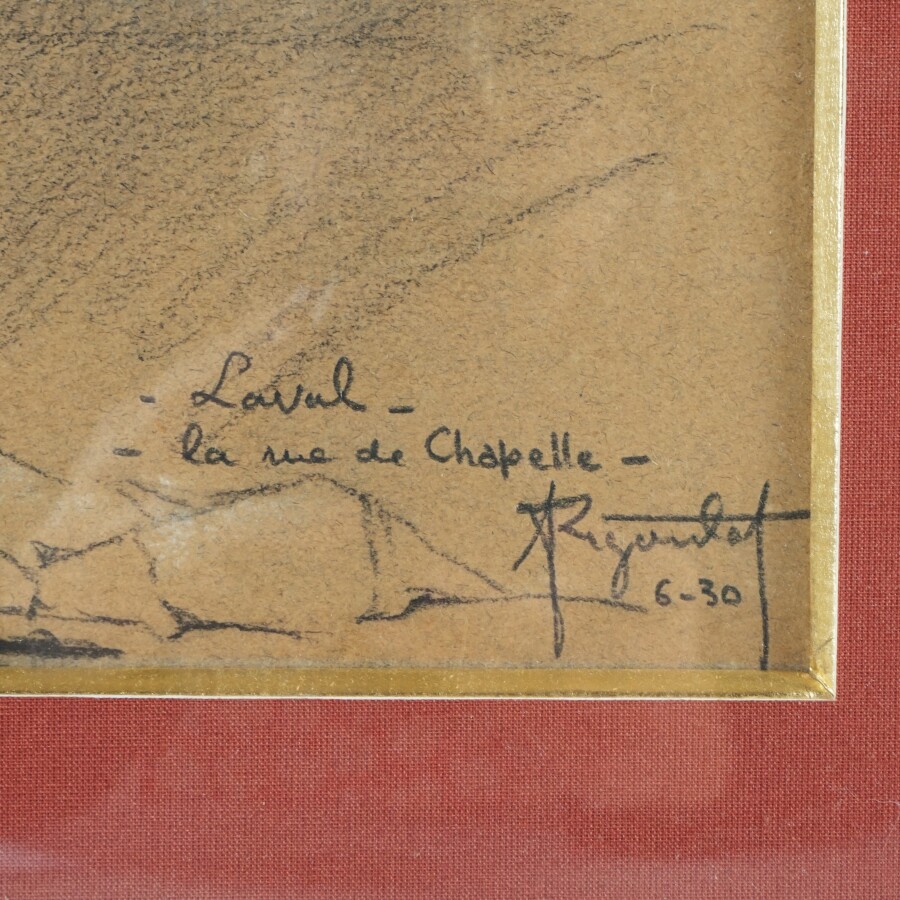 - Laval -
- la rue de Chapelle -
6-30